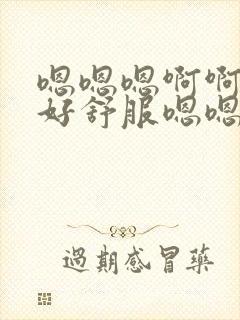 嗯嗯嗯啊啊
好舒服嗯嗯
过期感冒藥